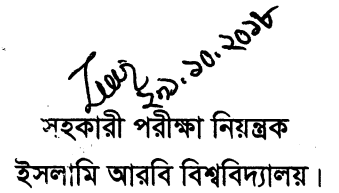 ২৯.১০.২০১৮
সহকারী পরীক্ষা নিয়ন্ত্রক
ইসলামি আরবি বিশ্ববিদ্যালয়।